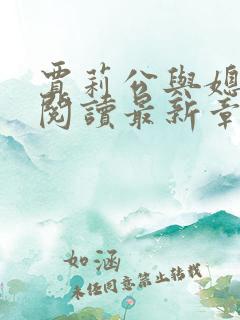 賈莉公與媳
閱讀最新章
如涵
未经同意禁止转载